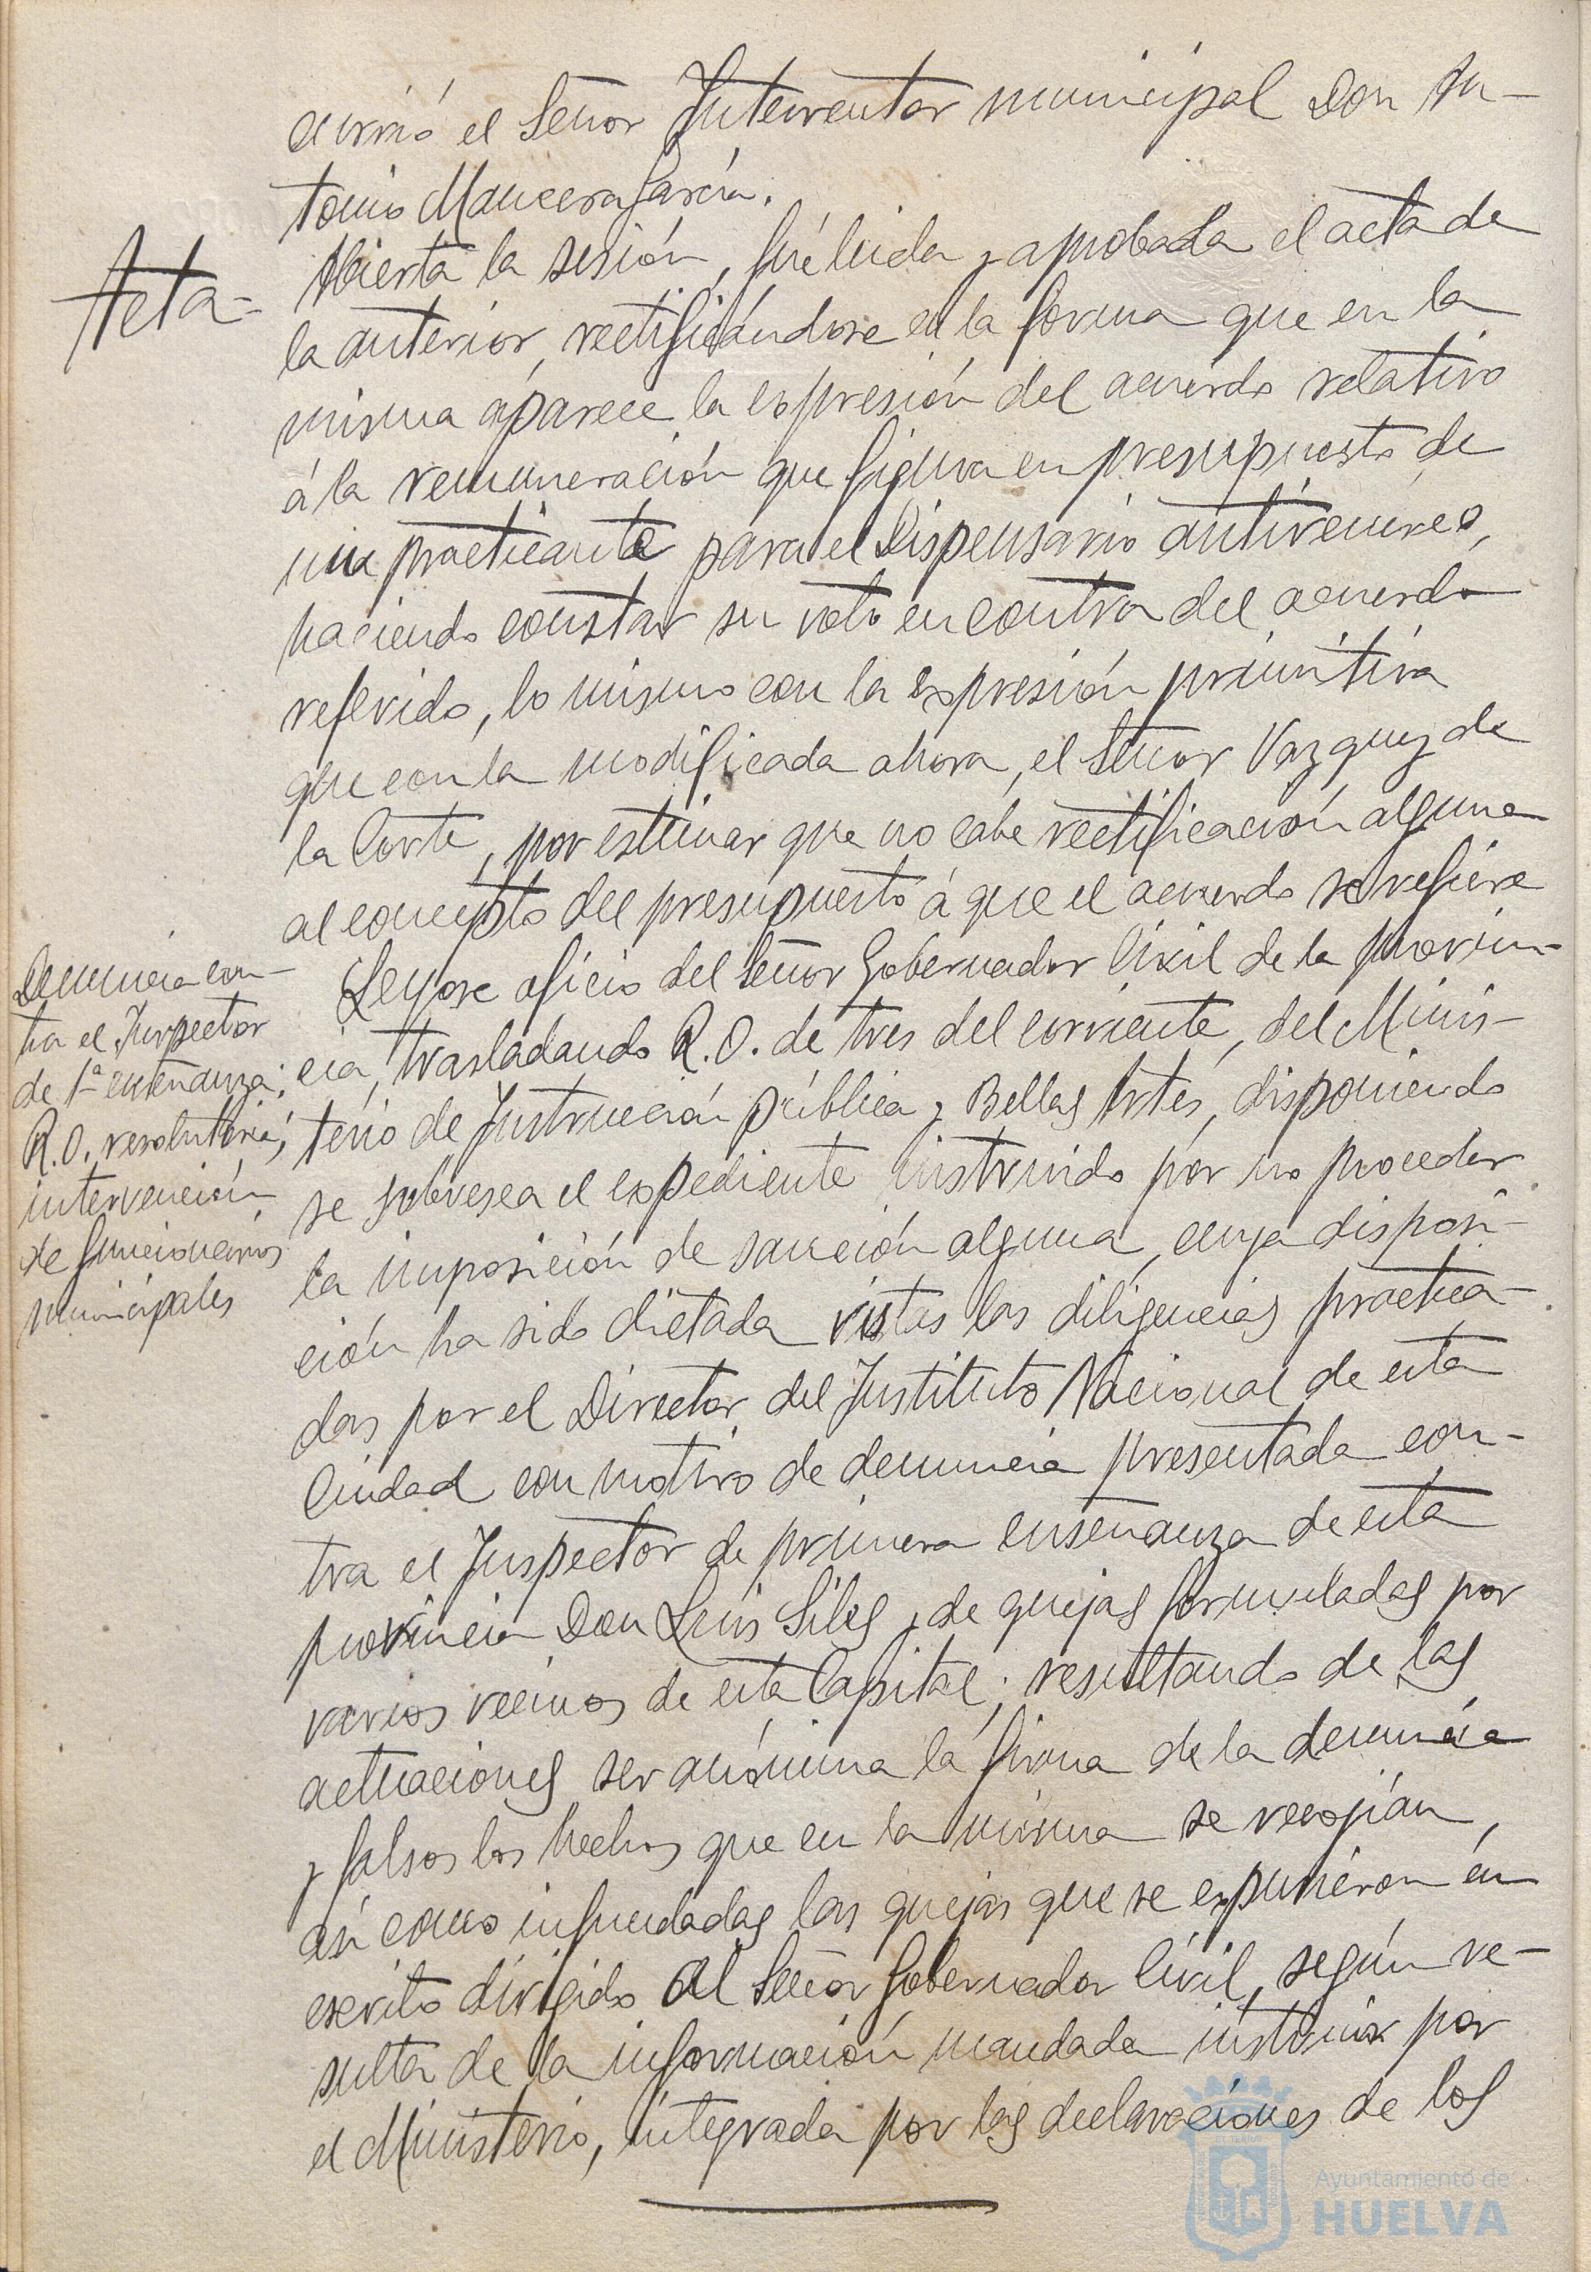 currió el Señor Interventor municipal Don An-
tonio Mancera García.
Acta-
Abierta la sesión, fué leida y aprobada el acta de
la anterior, rectificándose en la forma que en la
misma aparece la expresión del acuerdo relativo
á la remuneración que figura en presupuesto de
un practicante para el Dispensario antivenéreo,
haciendo constar su voto en contra del acuerdo
referido, lo mismo con la expresión primitiva
que con la modificada ahora, el Señor Vazquez de
la Corte, por estimar que no cabe rectificación alguna
al concepto del presupuesto á que el acuerdo se refiere
Denuncia con-
tra el Inspector
de 1ª enseñanza:
R.O. resolutoria;
intervención
de funcionarios
municipales
Leyose oficio del Señor Gobernador Civil de la provin-
cia, trasladando R.O. de tres del corriente, del Minis-
terio de Instrucción pública y Bellas Artes, disponiendo
se sobresea el expediente instruido por no proceder
la imposición de sanción alguna, cuya disposi-
ción ha sido dictada vistas las diligencias practica-
das por el Director del Instituto Nacional de esta
Ciudad con motivo de denuncia presentada con-
tra el Inspector de primera enseñanza de esta
provincia Don Luis Siles y de quejas formuladas por
varios vecinos de esta Capital; resultando de las
actuaciones ser anónima la firma de la denuncia
y falsos los hechos que en la misma se recogían,
así como infundadas las quejas que se expusieron en
escrito dirigido al Señor Gobernador Civil, según re-
sulta de la información mandada instruir por
el Ministerio, integrada por las declaraciones de los
Ayuntamiento de
HUELVA